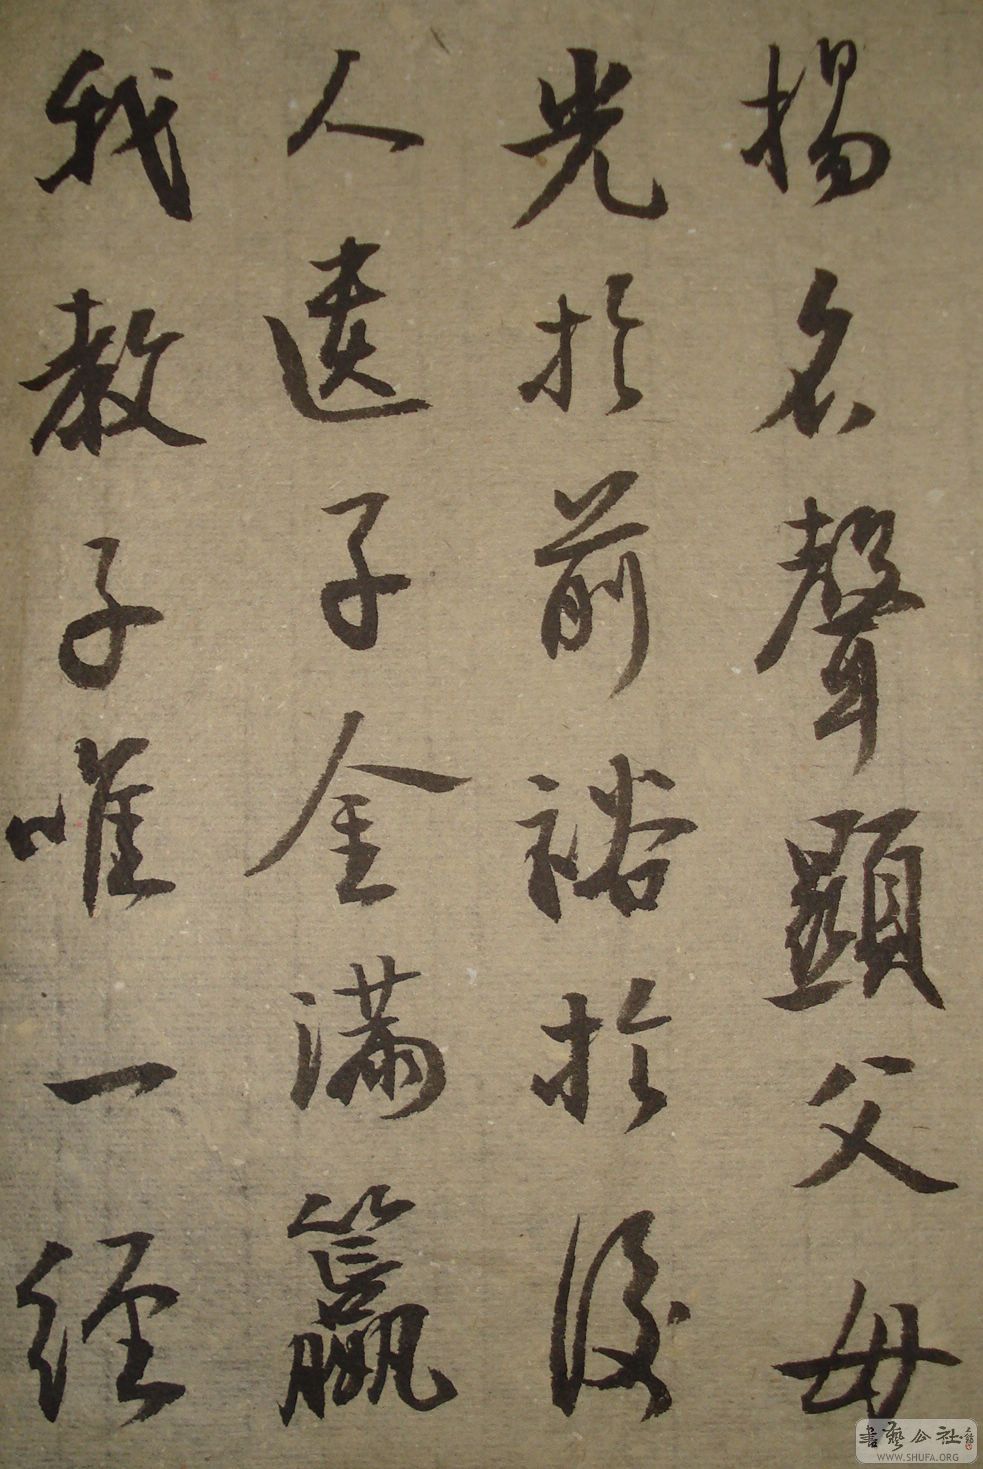 揚名聲顯父母
光於前裕於後
人遺子金滿籯
我教子唯一經
書藝公社
WWW.SHUFA.ORG